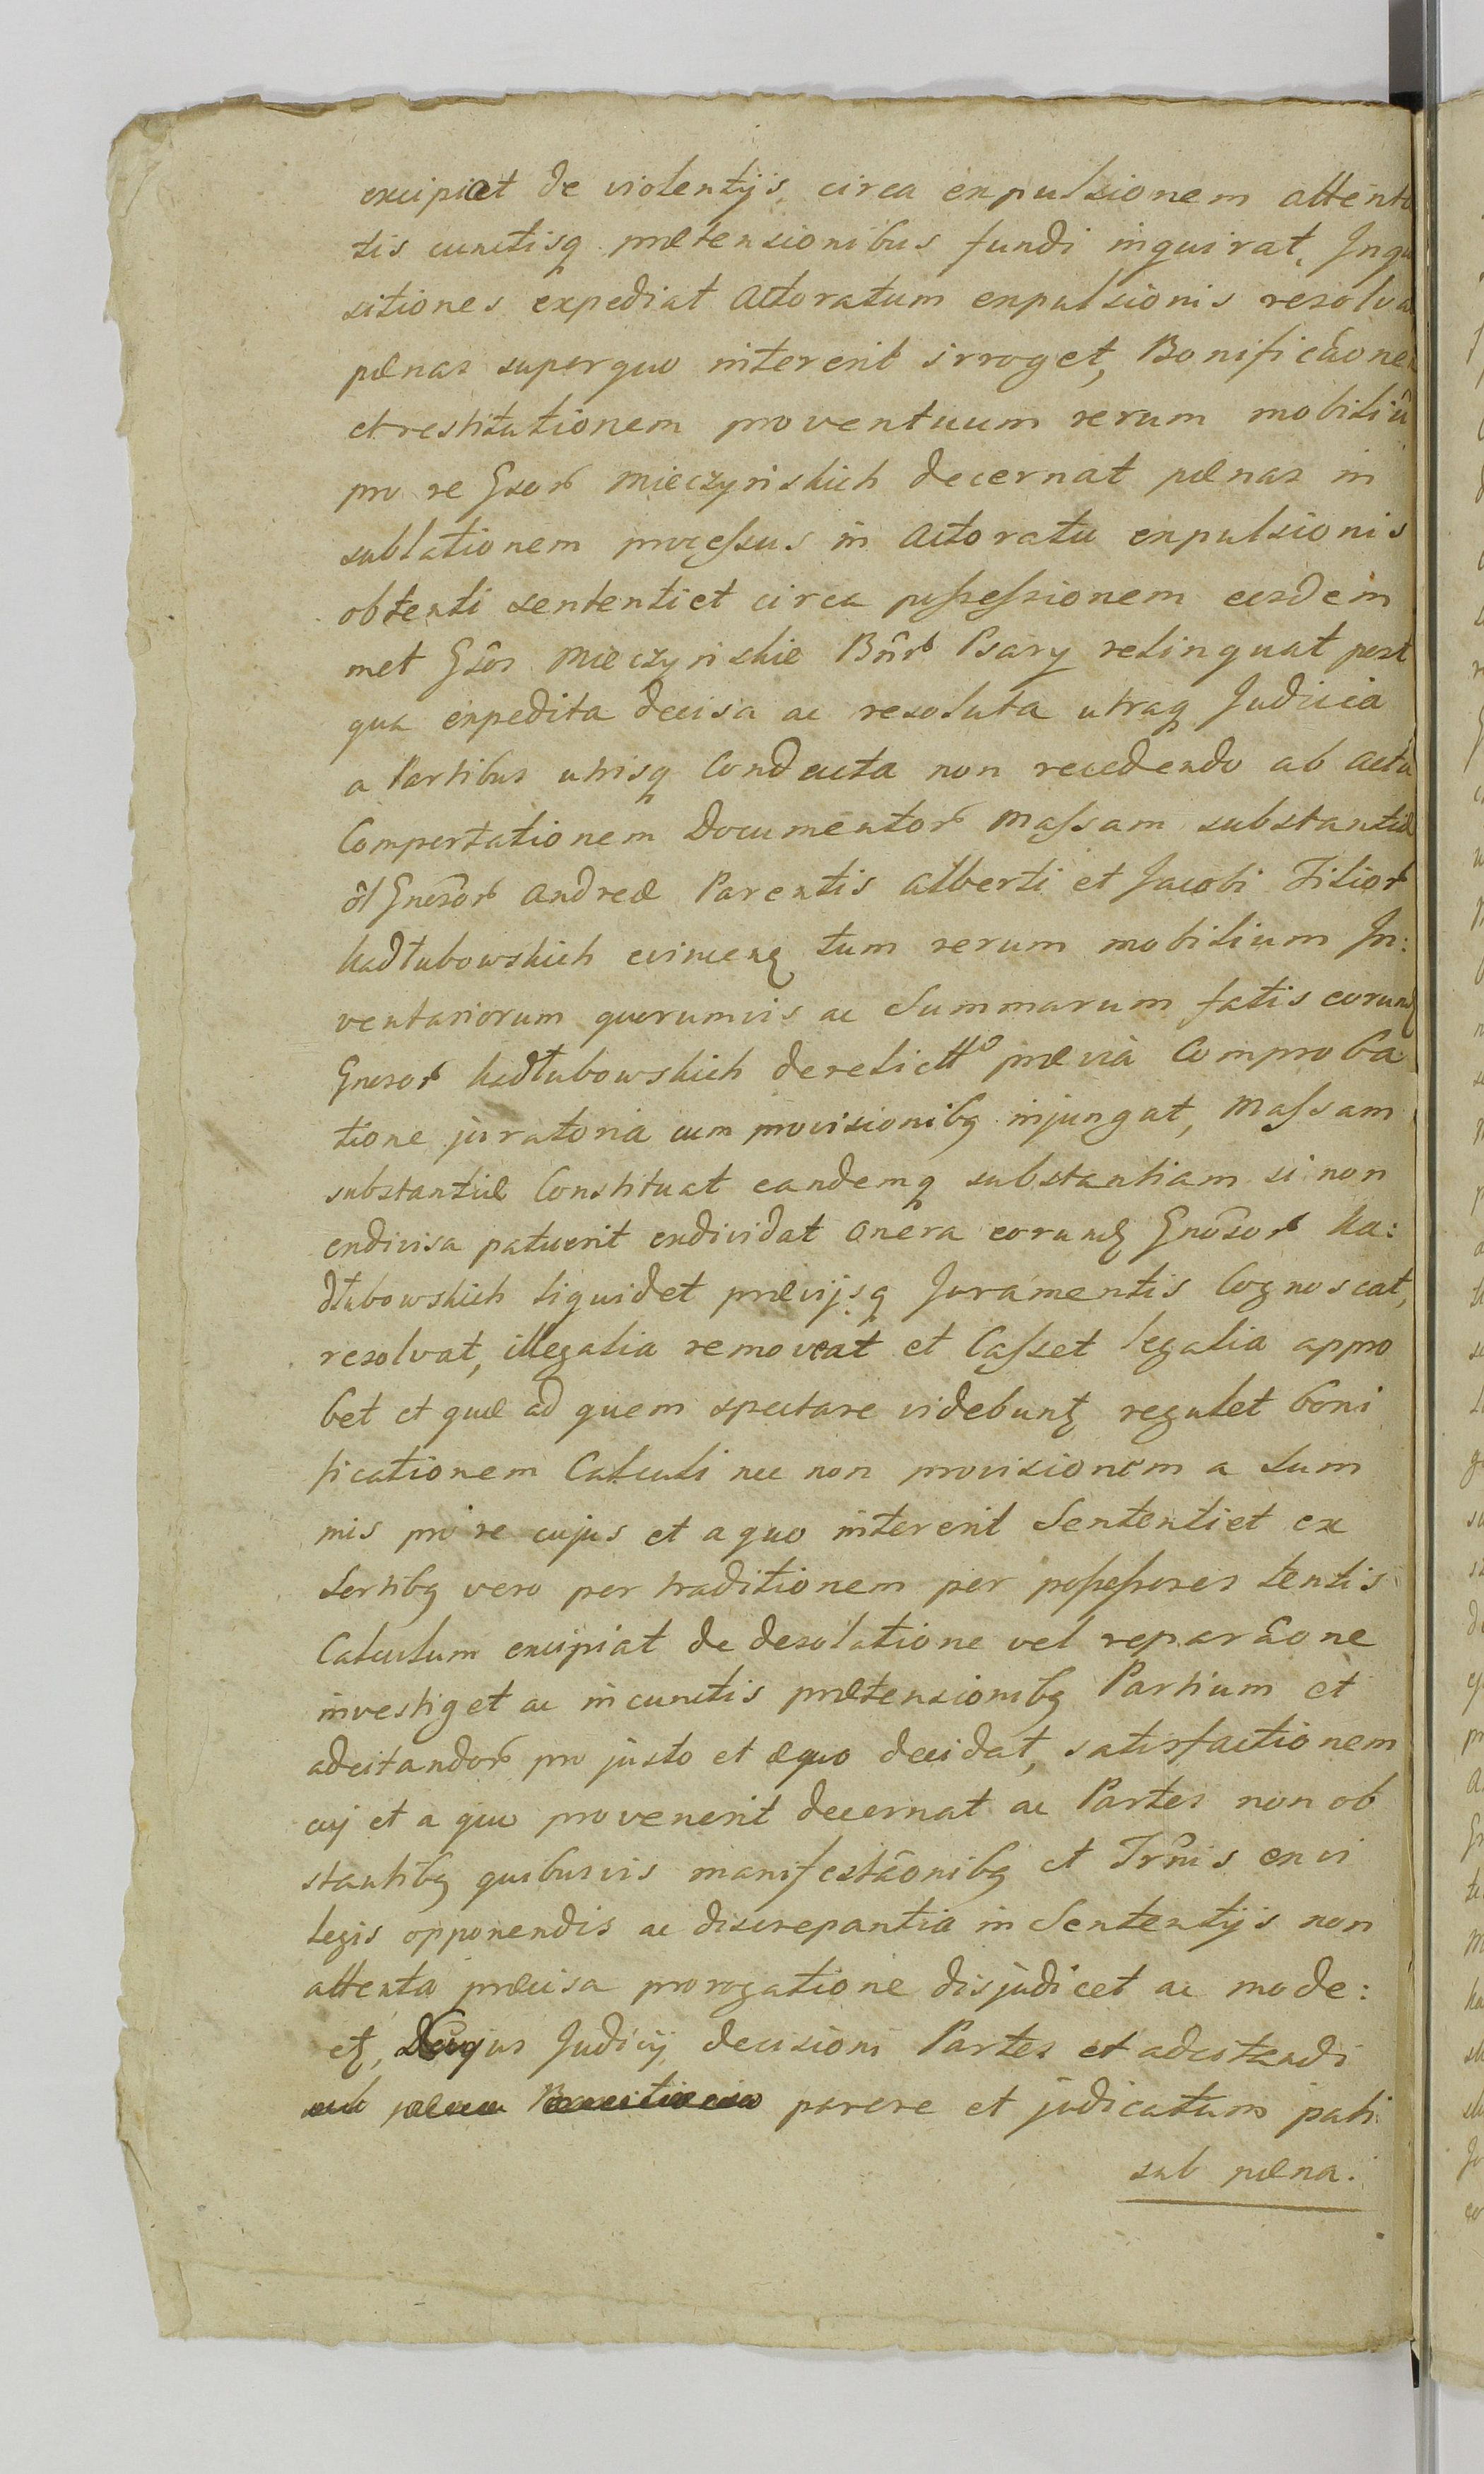 excipiat de violentijs, circa expulsionem attenta
tis cunctisq prætensionibus fundi inquirat, Inqui
sitiones expediat Actoratum expulsionis resolvat
pænas superquo intererit irroget, Bonificãone
et restitutionem proventuum rerum mobiliũ
pro re Gsor Mieczynskich decernat pænas in
sublationem processus in Actoratu expulsionis
obtenti sententiet circa possessionem eosdem
met Gsos Mieczynskie Bnr Psary relinquat post
qua expedita decisa ac resoluta utraq Judicia
a Partibus utrisq Conducta non recedendo ab actu
Comportationem Documentor Massam substantiæ
ol Gnosor Andreæ Parentis Alberti et Jacobi Filior
Kadłubowskich evincenq tum rerum mobilium In:
ventariorum quorumvis ac Summarum fatis eorunq
Gnosor Kadłubowskich derelicttᵒ prævia Comproba
tione juratoria cum provisionibq injungat, Massam
substantiæ Constituat eandemq substantiam si non
exdivisa patuerit exdividat onera eorunq Gnosor Ka:
dłubowskich liquidet prævijsq Juramentis Cognoscat,
resolvat, illegalia removeat et Casset legalia appro
bet et quæ ad quem spectare videbuntq regulet boni
ficationem Calculi nec non provisionem a Sum
mis pro re cujus et a quo intererit Sententiet ex
Sortibq vero per traditionem per possessores tentis
Calculum excipiat de desolatione vel reparãone
investiget ac in cunctis prætensionibq Partium et
adcitandor pro justo et æquo decidat, satisfactionem
cuj et a quo provenerit decernat ac Partes non ob
stantibq quibusvis manifestãonibq et Trmis ex vi
legis opponendis ac discrepantia in Sententijs non
attenta præcisa prorogatione disjudicet ac mode:
etq, Cujus Judicij decisioni Partes et adcitandi
sub pæna parere et judicatum pati
sub pæna.